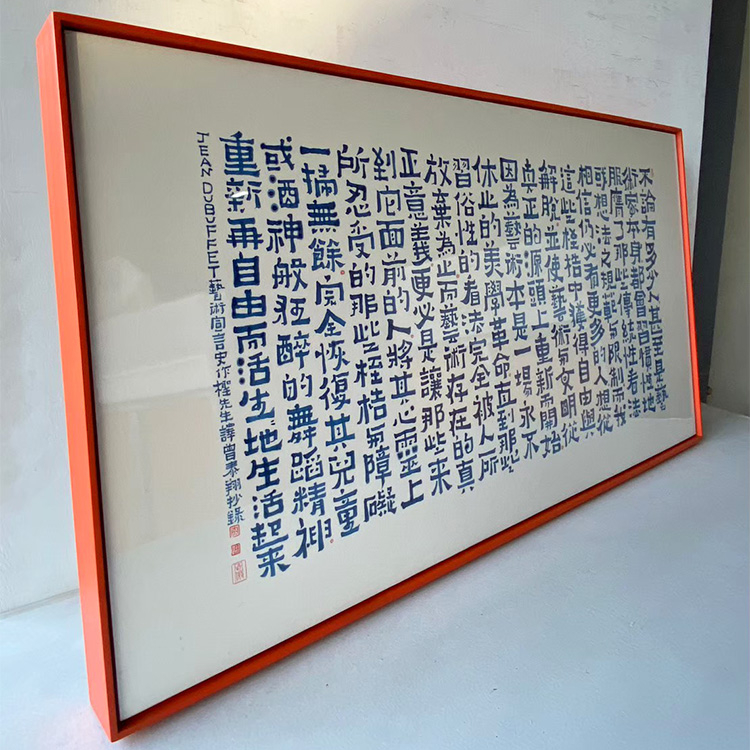 不論有多少人甚至是藝
術家本身都曾習慣性地
服膺了那些傳統性看法
或想法之規範與限制而我
相信仍必有更多的人想從
這些桎梏中獲得自由與
解脫並使藝術與文明從
真正的源頭上重新開始
因為藝術本是一場永不
休止的美學革命直到那些
習俗性的看法完全被人所
放棄為止而藝術存在的真
正意義更必是讓那些来
到它面前的人將其心靈上
所忍受的那些桎梏與障礙
一掃無餘完全恢復其兒童
或酒神般狂醉的舞蹈精神
重新再自由而活生:地生活起来
JEAN DUBUFFET藝術宣言史作檉先生譯曾泰翔抄錄